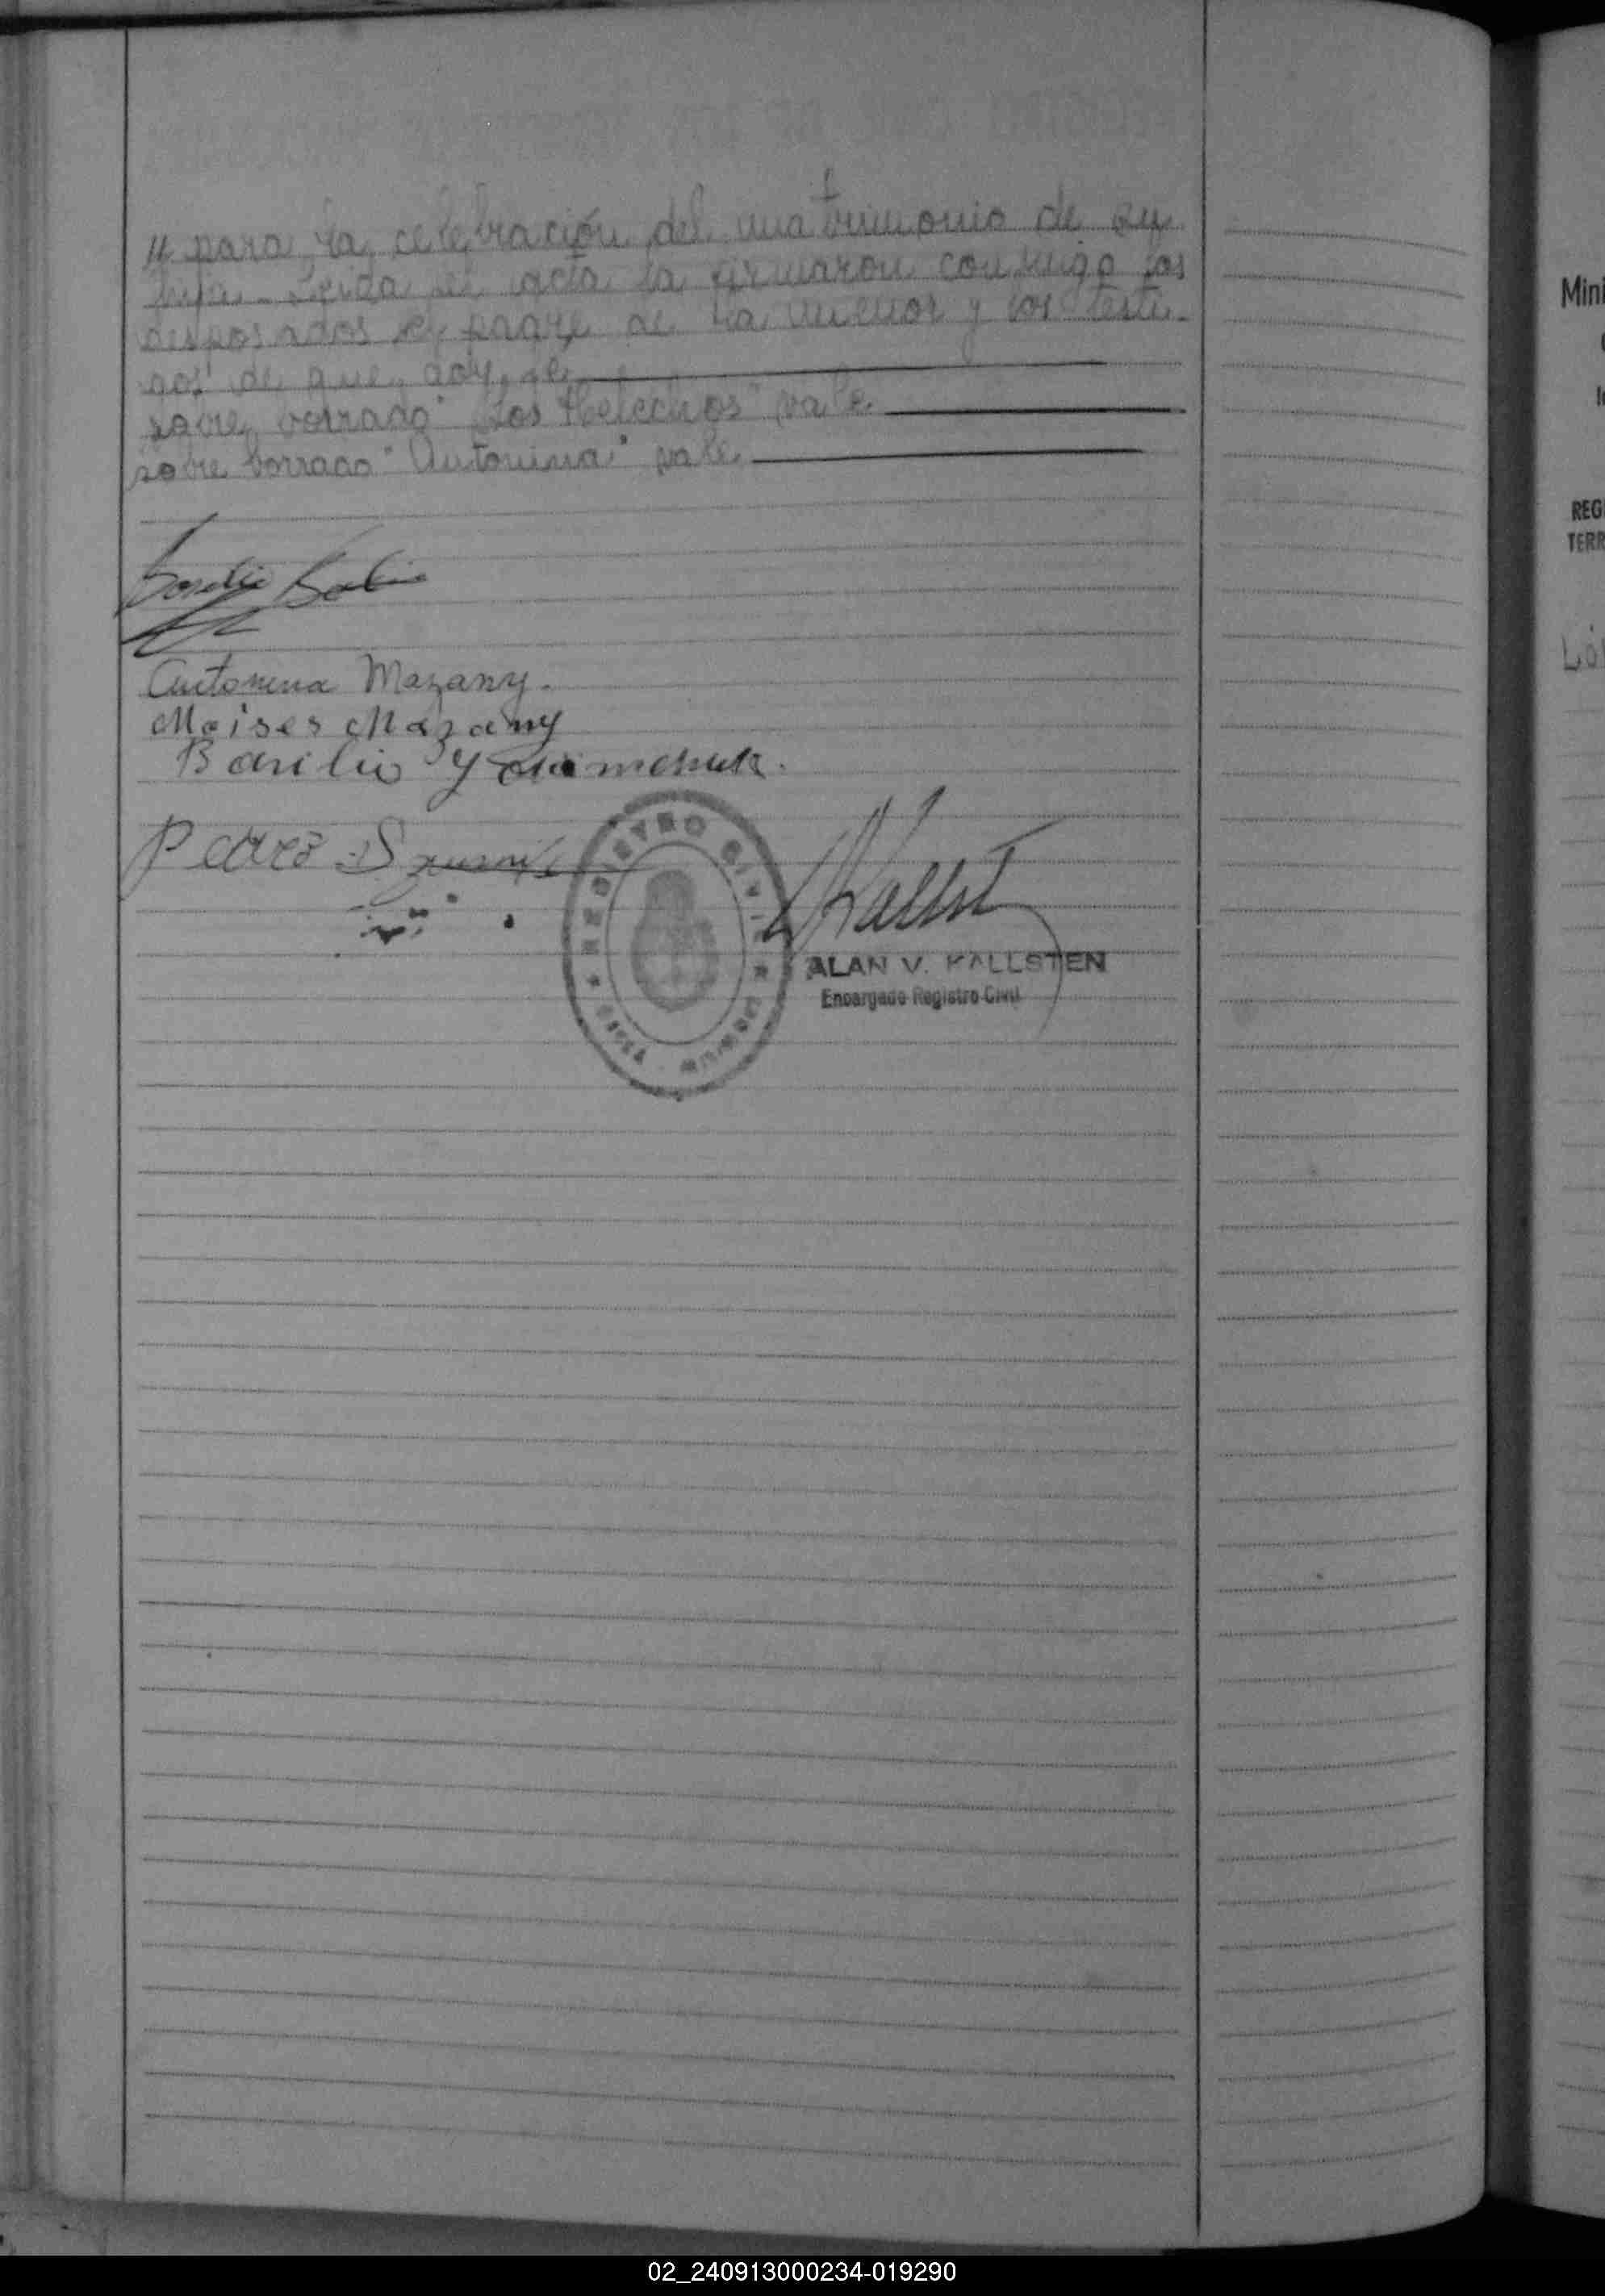 " para la celebración del matrimonio de su
hija.- Leida el acta la firmaron conmigo los
desposados el padre de la menor y los testi-
gos de que doy fe
sobre borrado "Los Helechos" vale
sobre borrado "Antonina" vale
Antonina Mazany.
Moises Mazany
Basilio
Pedro
REGISTRO CIVIL
MISIONES
Kallst
ALAN V. KALLSTEN
Encargado Registro Civil
Mini
REG
TERR
02_240913000234-019290